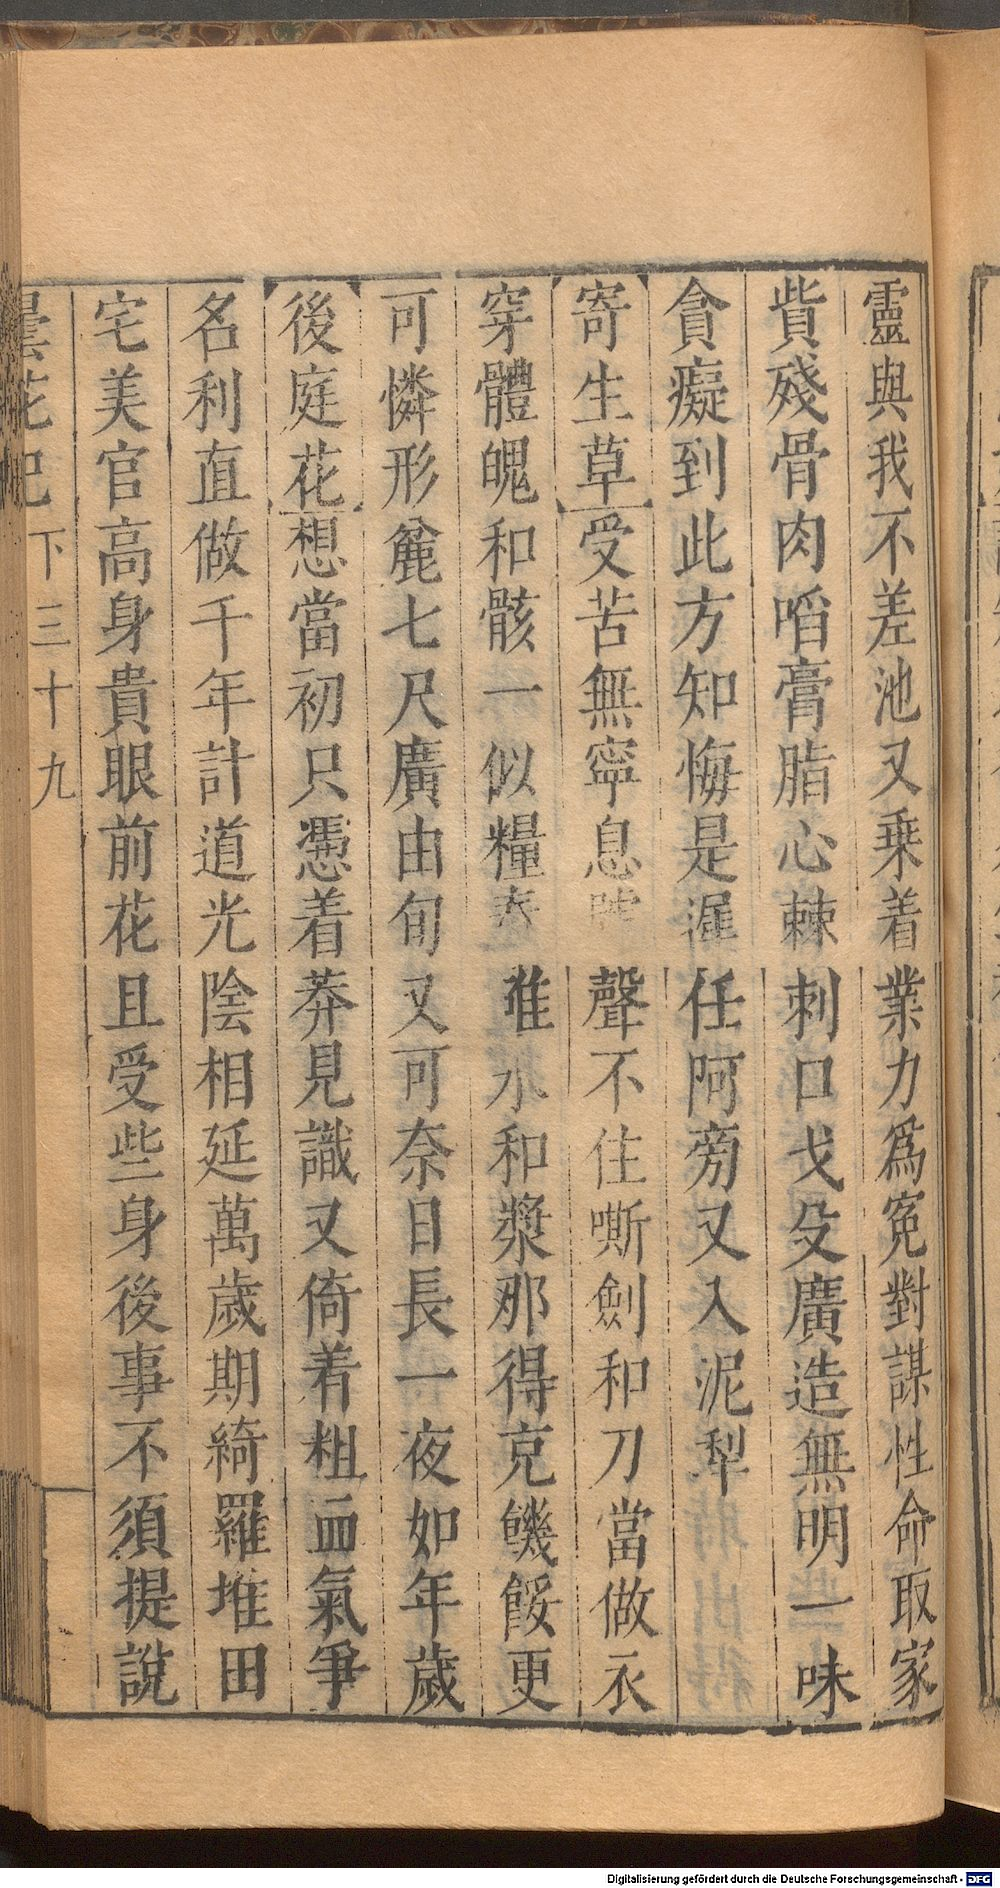 靈與我不差池又乗着業力爲寃對謀性命取家
貲殘骨肉啗膏脂心棘刺口戈殳廣造無明一味
貪癡到此方知悔是遲任阿旁又入泥犁
寄生草受苦無寧息聲不住嘶劍和刀當做衣
穿體魄和骸一似糧水和漿那得克饑餒更
可憐形麄七尺廣由旬又可奈日長一夜如年歲
後庭花想當初只憑着莽見識又倚着粗血氣爭
名利直做千年計道光陰相延萬歲期綺羅堆田
宅美官高身貴眼前花且受些身後事不須提說
曇花記 下 三十九
Digitalisierung gefördert durch die Deutsche Forschungsgemeinschaft - DFG